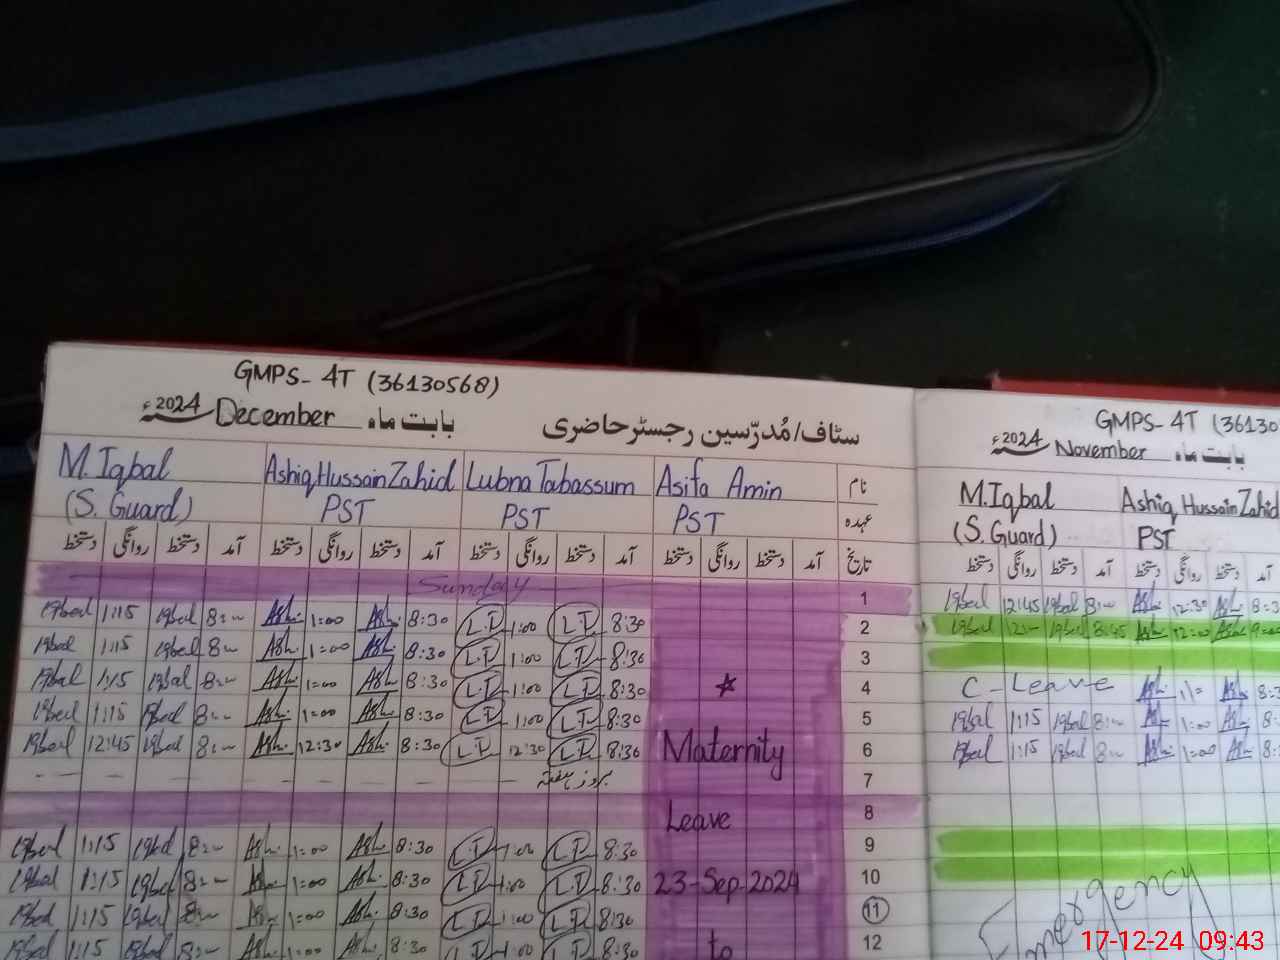 GMPS- 4T (36130568)
سٹاف/مُدرّسین رجسٹر حاضری بابت ماہ December 2024ء
نام Asifa Amin Lubna Tabassum Ashiq Hussain Zahid M. Iqbal
عہدہ PST PST PST (S. Guard)
تاریخ آمد دستخط روانگی دستخط آمد دستخط روانگی دستخط آمد دستخط روانگی دستخط آمد دستخط روانگی دستخط
1 Sunday
2 8:30 L.T 1:00 L.T 8:30 Ash. 1:00 Ash. 8:00 Iqbal 1:15 Iqbal
3 8:30 L.T 1:00 L.T 8:30 Ash. 1:00 Ash. 8:00 Iqbal 1:15 Iqbal
4 8:30 L.T 1:00 L.T 8:30 Ash. 1:00 Ash. 8:00 Iqbal 1:15 Iqbal
5 8:30 L.T 1:00 L.T 8:30 Ash. 1:00 Ash. 8:00 Iqbal 1:15 Iqbal
6 Maternity 8:30 L.T 12:30 L.T 8:30 Ash. 12:30 Ash. 8:00 Iqbal 12:45 Iqbal
7 بروز ہفتہ
8 Leave
9 8:30 L.T 1:00 L.T 8:30 Ash. 1:00 Ash. 8:00 Iqbal 1:15 Iqbal
10 23-Sep-2024 8:30 L.T 1:00 L.T 8:30 Ash. 1:00 Ash. 8:00 Iqbal 1:15 Iqbal
11 8:30 L.T 1:00 L.T 8:30 Ash. 1:00 Ash. 8:00 Iqbal 1:15 Iqbal
12 to 8:30 L.T 1:00 L.T 8:30 Ash. 1:00 Ash. 8:00 Iqbal 1:15 Iqbal
GMPS- 4T (36130
بابت ماہ November 2024ء
Ashiq Hussain Zahid M. Iqbal
PST (S. Guard)
آمد دستخط روانگی دستخط آمد دستخط روانگی دستخط
Ash. 12:30 Ash. 8:00 Iqbal 12:45 Iqbal
Ash. 12:00 Ash. 8:45 Iqbal Iqbal
Ash. Ash. C-Leave
Ash. 1:00 Ash. 8:00 Iqbal 1:15 Iqbal
Ash. 1:00 Ash. 8:00 Iqbal 1:15 Iqbal
Emergency
17-12-24 09:43